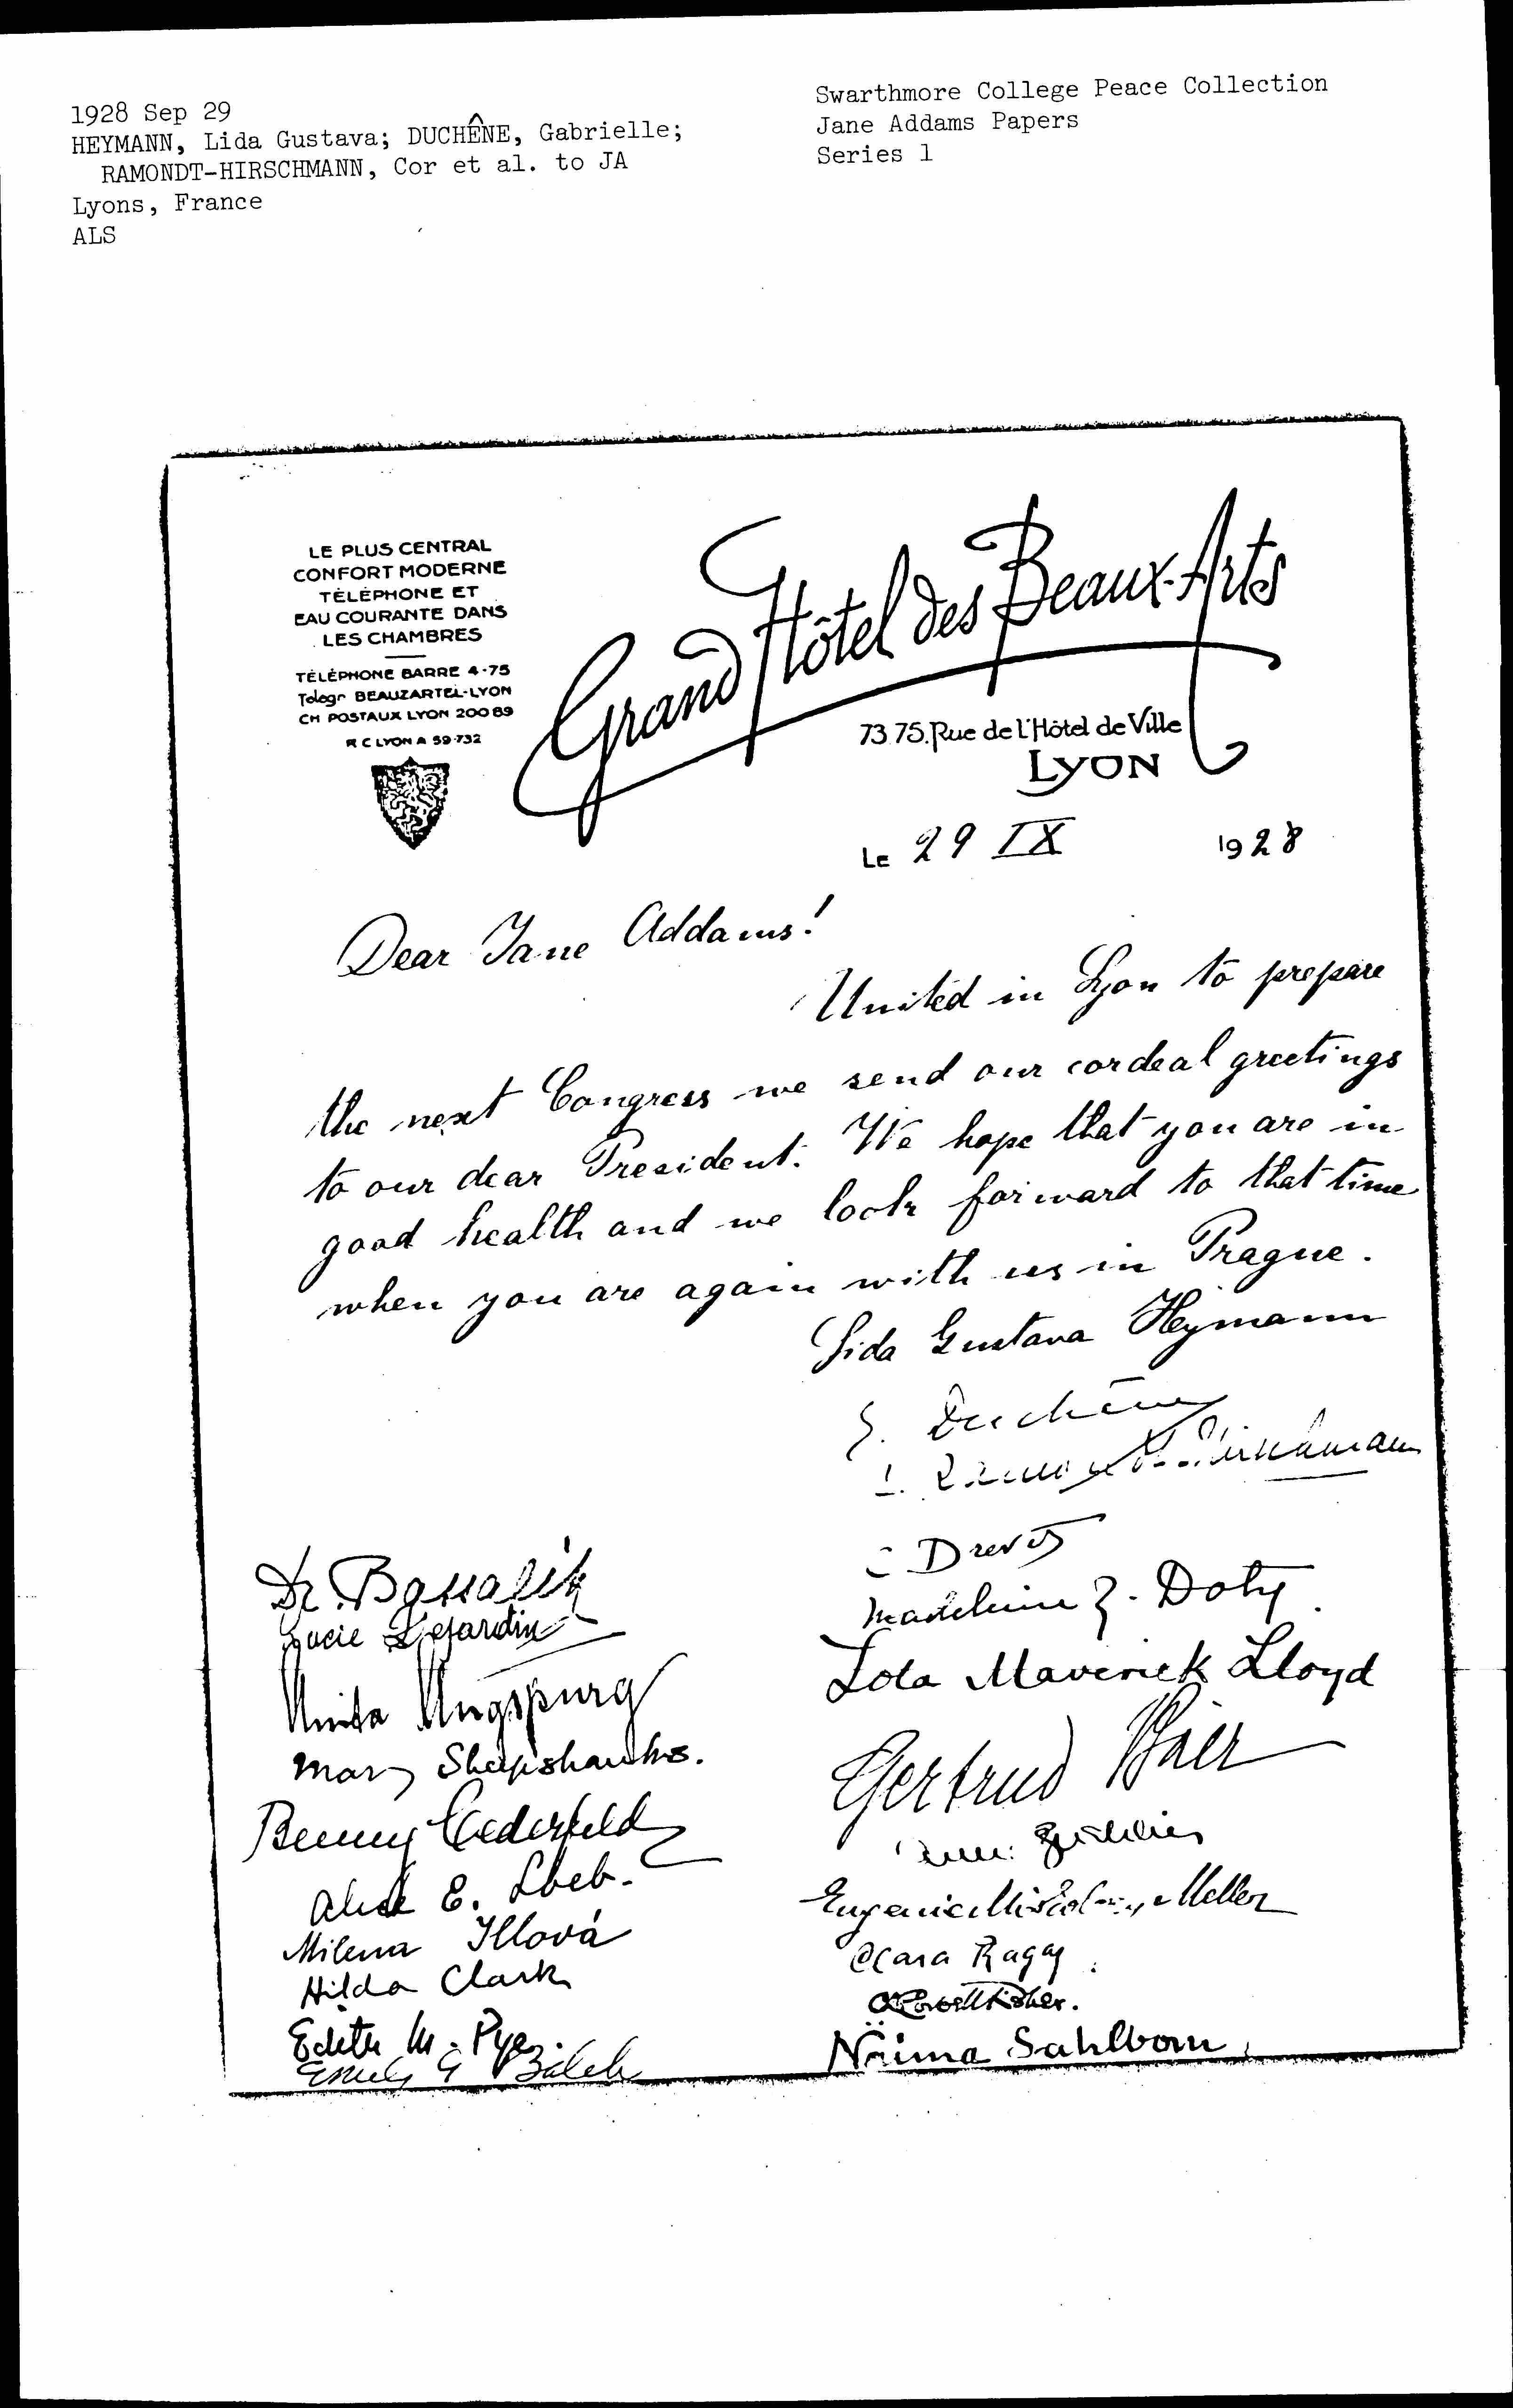 1928 Sep 29
HEYMANN, Lida Gustava; DUCHÊNE, Gabrielle;
RAMONDT-HIRSCHMANN, Cor et al. to JA
Lyons, France
ALS
Swarthmore College Peace Collection
Jane Addams Papers
Series 1
LE PLUS CENTRAL
CONFORT MODERNE
TÉLÉPHONE ET
EAU COURANTE DANS
LES CHAMBRES
TÉLÉPHONE BARRE 4-75
Telegr BEAUZARTEL-LYON
CH POSTAUX LYON 200 89
R C LYON A 59-732
Grand Hôtel des Beaux-Arts
73.75. Rue de l'Hôtel de Ville
LYON
LE 29 IX 1928
Dear Jane Addams!
United in Lyon to prepare
the next Congress we send our cordeal greetings
to our dear President. We hope that you are in
good health and we look forward to that time
when you are again with us in Prague.
Lida Gustava Heymann
G. Duchêne
Ramondt-Hirschmann
Drevet
Madeleine Z. Doty
Lola Maverick Lloyd
Gertrud Baer
Eugenie Meller
Clara Ragaz
Naima Sahlbom
Dr. Bassalik
Lucie Dejardin
Anita Augspurg
Mary Sheepshanks.
Benny Cederfeld
Milena Illová
Hilda Clark
Edith M. Pye.
Emily G Balch